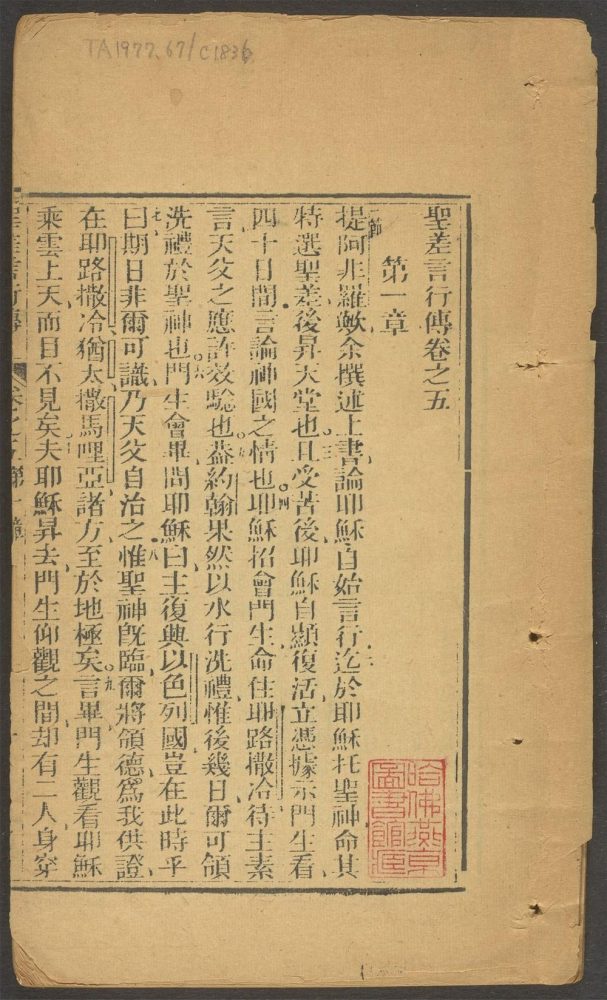 TA 1977.67/C1836
聖差言行傳卷之五
第一章
一節提阿非羅歟余撰述上書論耶穌自始言行迄於耶穌托聖神命其
特選聖差後昇天堂也且受苦後耶穌自顯復活立憑據示門生看
四十日間言論神國之情也四耶穌招會門生命住耶路撒冷待主素
言天父之應許效驗也蓋約翰果然以水行洗禮惟後幾日爾可領
洗禮於聖神也六門生會畢問耶穌曰主復興以色列國豈在此時乎
七曰期日非爾可識乃天父自治之八惟聖神旣臨爾將領德爲我供證
在耶路撒冷猶太撒馬哩亞諸方至於地極矣九言畢門生觀看耶穌
乘雲上天而目不見矣夫耶穌昇去門生仰觀之間却有二人身穿
聖差言行傳
哈佛燕京圖書館